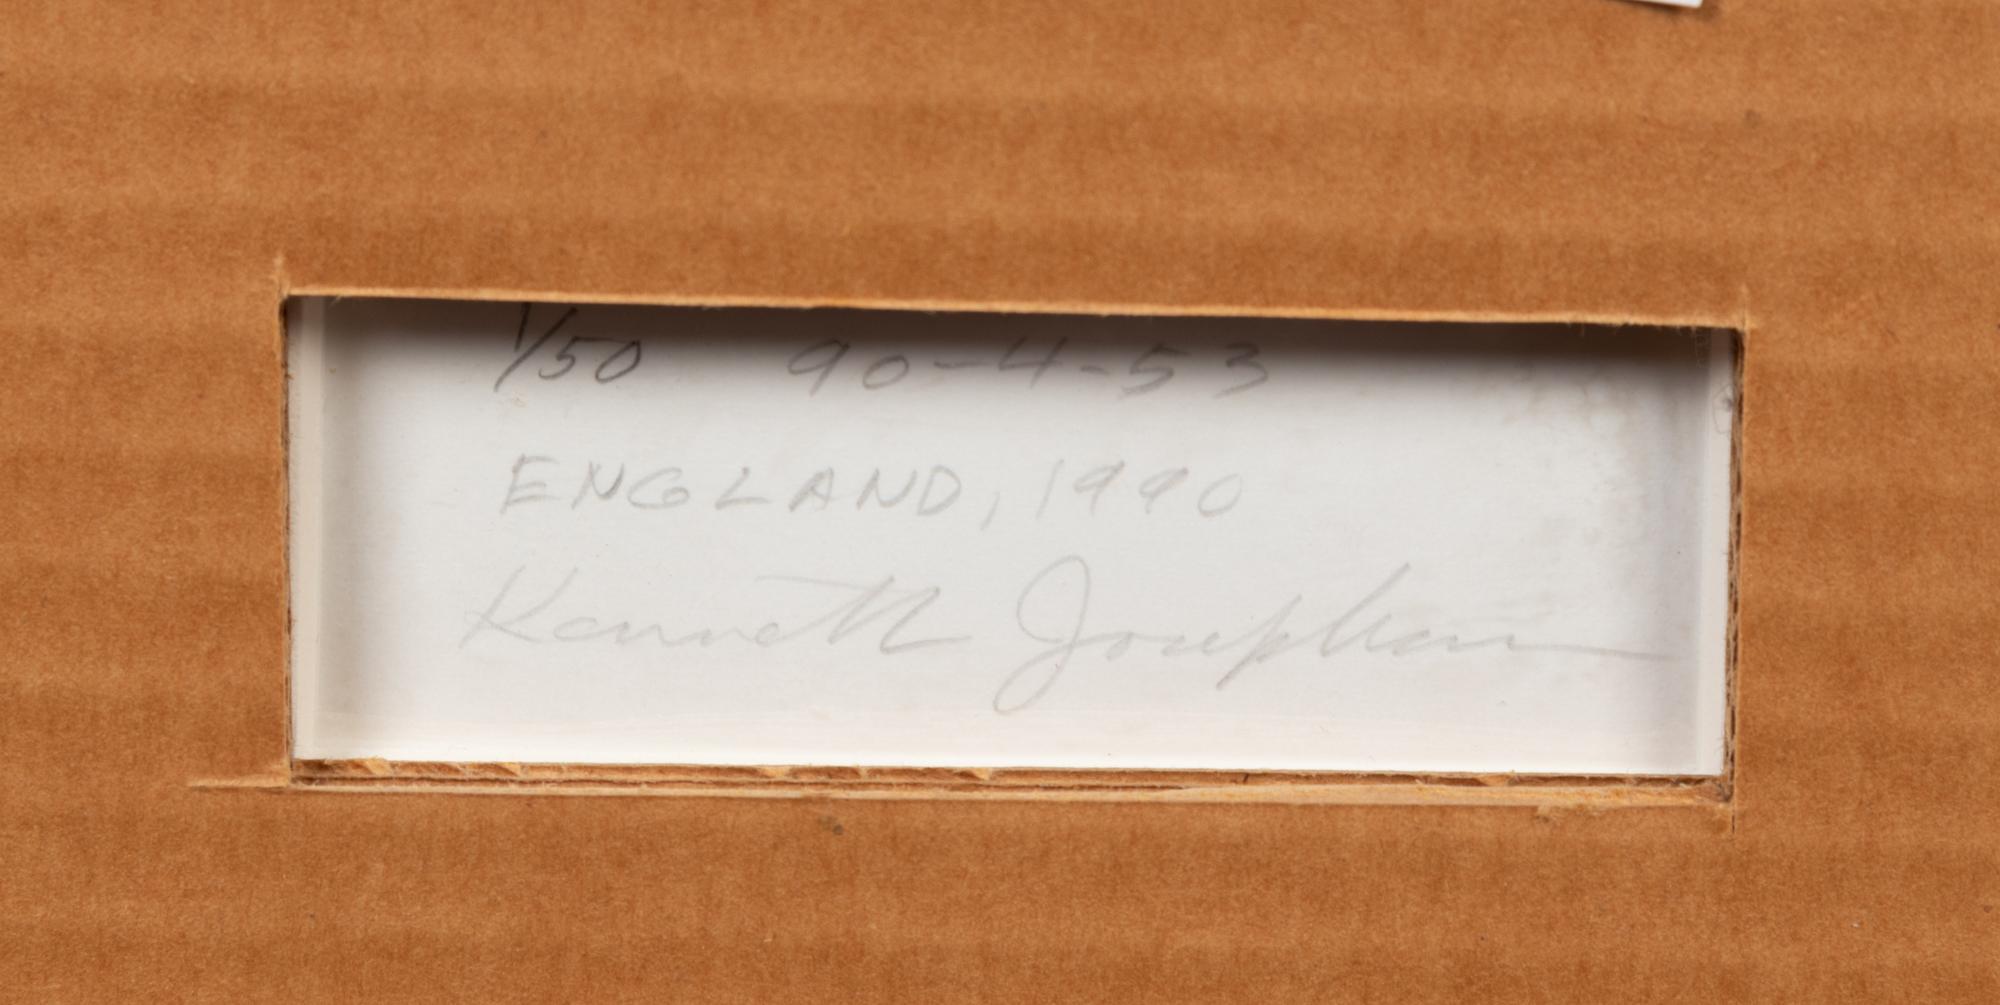 1/50 90-4-53
ENGLAND, 1990
Kenneth Josephson